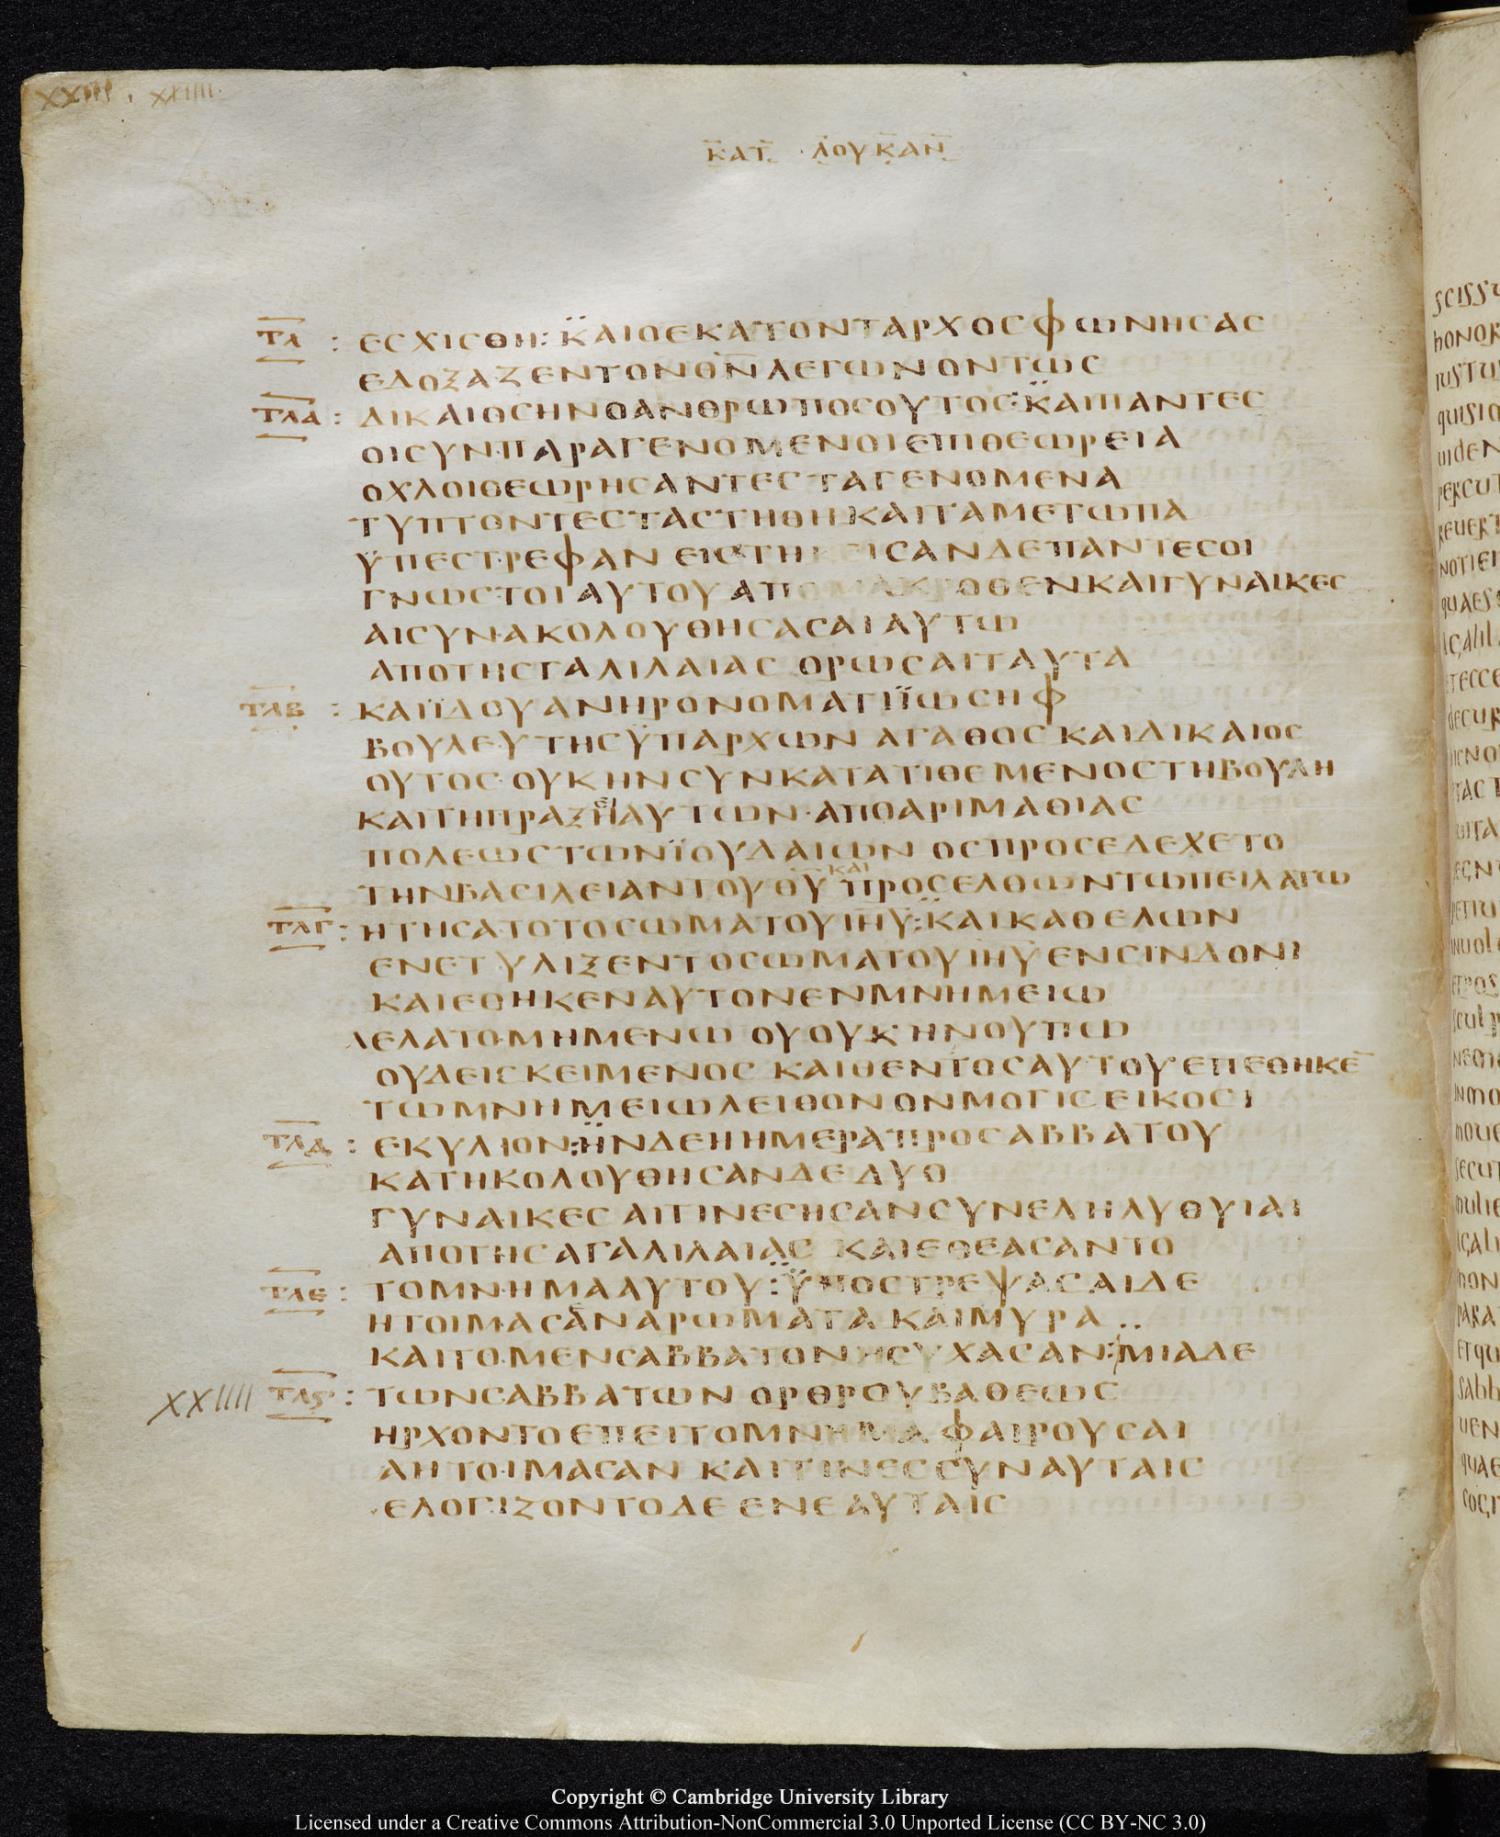 XXIIII . XXIIII.
ΚΑΤ ΛΟΥΚΑΝ
ΤΛ : ΕΣΧΙΣΘΗ: ΚΑΙΟΕΚΑΤΟΝΤΑΡΧΟΣΦΩΝΗΣΑΣ
ΕΔΟΞΑΖΕΝΤΟΝΘΝΛΕΓΩΝΟΝΤΩΣ
ΤΛΑ : ΔΙΚΑΙΟΣΗΝΟΑΝΘΡΩΠΟΣΟΥΤΟΣ:ΚΑΙΠΑΝΤΕΣ
ΟΙΣΥΝΠΑΡΑΓΕΝΟΜΕΝΟΙΕΠΙΘΕΩΡΕΙΑ
ΟΧΛΟΙΘΕΩΡΗΣΑΝΤΕΣΤΑΓΕΝΟΜΕΝΑ
ΤΥΠΤΟΝΤΕΣΤΑΣΤΗΘΗΚΑΙΤΑΜΕΤΩΠΑ
ΫΠΕΣΤΡΕΦΑΝ ΕΙΣΤΗΚΕΙΣΑΝΔΕΠΑΝΤΕΣΟΙ
ΓΝΩΣΤΟΙΑΥΤΟΥΑΠΟΜΑΚΡΟΘΕΝΚΑΙΓΥΝΑΙΚΕΣ
ΑΙΣΥΝΑΚΟΛΟΥΘΗΣΑΣΑΙΑΥΤΩ
ΑΠΟΤΗΣΓΑΛΙΛΑΙΑΣ ΟΡΩΣΑΙΤΑΥΤΑ
ΤΛΒ : ΚΑΙΪΔΟΥΑΝΗΡΟΝΟΜΑΤΙΪΩΣΗΦ
ΒΟΥΛΕΥΤΗΣΫΠΑΡΧΩΝ ΑΓΑΘΟΣΚΑΙΔΙΚΑΙΟΣ
ΟΥΤΟΣ·ΟΥΚΗΝΣΥΝΚΑΤΑΤΙΘΕΜΕΝΟΣΤΗΒΟΥΛΗ
ΚΑΙΤΗΠΡΑΞΕΙΑΥΤΩΝ·ΑΠΟΑΡΙΜΑΘΙΑΣ
ΠΟΛΕΩΣΤΩΝΪΟΥΔΑΙΩΝ ΟΣΠΡΟΣΕΔΕΧΕΤΟ
ΤΗΝΒΑΣΙΛΕΙΑΝΤΟΥΘΥ ΚΑΙ ΠΡΟΣΕΛΘΩΝΤΩΠΕΙΛΑΤΩ
ΤΛΓ : ΗΤΗΣΑΤΟΤΟΣΩΜΑΤΟΥΙΗΥ:ΚΑΙΚΑΘΕΛΩΝ
ΕΝΕΤΥΛΙΞΕΝΤΟΣΩΜΑΤΟΥΙΗΥΕΝΣΙΝΔΟΝΙ
ΚΑΙΕΘΗΚΕΝΑΥΤΟΝΕΝΜΝΗΜΕΙΩ
ΛΕΛΑΤΟΜΗΜΕΝΩ ΟΥΟΥΚΗΝΟΥΠΩ
ΟΥΔΕΙΣΚΕΙΜΕΝΟΣ ΚΑΙΘΕΝΤΟΣΑΥΤΟΥΕΠΕΘΗΚΕ̅
ΤΩΜΝΗΜΕΙΩΛΕΙΘΟΝΟΝΜΟΓΙΣΕΙΚΟΣΙ
ΤΛΔ : ΕΚΥΛΙΟΝ:ΗΝΔΕΗΗΜΕΡΑΠΡΟΣΑΒΒΑΤΟΥ
ΚΑΤΗΚΟΛΟΥΘΗΣΑΝΔΕΔΥΟ
ΓΥΝΑΙΚΕΣΑΙΤΙΝΕΣΗΣΑΝΣΥΝΕΛΗΛΥΘΥΙΑΙ
ΑΠΟΤΗΣΑΓΑΛΙΛΑΙΑΣ ΚΑΙΕΘΕΑΣΑΝΤΟ
ΤΛΕ : ΤΟΜΝΗΜΑΑΥΤΟΥ:ΫΠΟΣΤΡΕΨΑΣΑΙΔΕ
ΗΤΟΙΜΑΣΑΝΑΡΩΜΑΤΑΚΑΙΜΥΡΑ ..
ΚΑΙΤΟΜΕΝΣΑΒΒΑΤΟΝΗΣΥΧΑΣΑΝ:ΜΙΑΔΕ
XXIIII ΤΛϚ : ΤΩΝΣΑΒΒΑΤΩΝ ΟΡΘΡΟΥΒΑΘΕΩΣ
ΗΡΧΟΝΤΟΕΠΕΙΤΟΜΝΗΜΑΦΑΙΡΟΥΣΑΙ
ΑΗΤΟΙΜΑΣΑΝ ΚΑΙΤΙΝΕΣΣΥΝΑΥΤΑΙΣ
ΕΛΟΓΙΖΟΝΤΟΔΕΕΝΕΑΥΤΑΙΣ
Copyright © Cambridge University Library
Licensed under a Creative Commons Attribution-NonCommercial 3.0 Unported License (CC BY-NC 3.0)